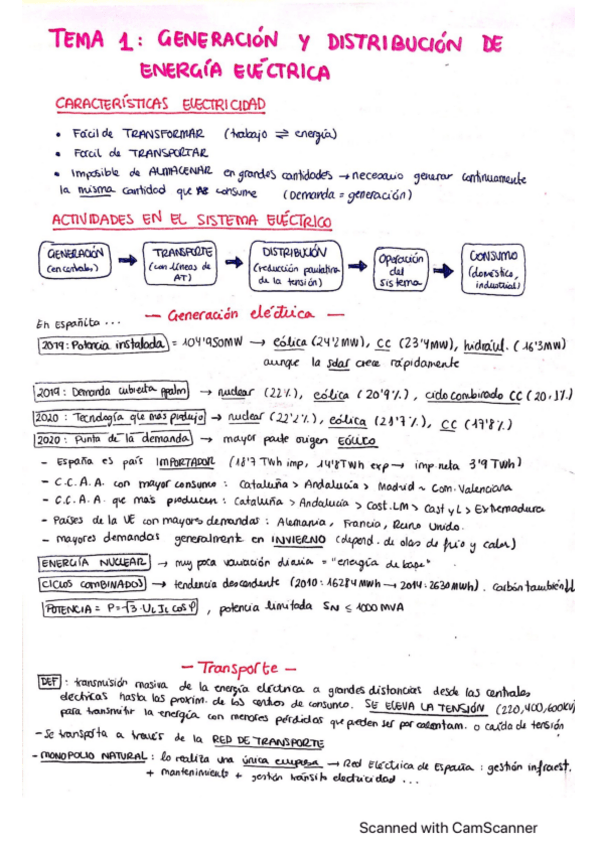 TEMA 1: GENERACIÓN Y DISTRIBUCIÓN DE
ENERGÍA ELÉCTRICA
CARACTERÍSTICAS ELECTRICIDAD
• Fácil de TRANSFORMAR (trabajo ⇌ energía)
• Fácil de TRANSPORTAR
• Imposible de ALMACENAR en grandes cantidades → necesario generar continuamente
la misma cantidad que se consume (Demanda = generación)
ACTIVIDADES EN EL SISTEMA ELÉCTRICO
GENERACIÓN (en centrales) → TRANSPORTE (con líneas de AT) → DISTRIBUCIÓN (reducción paulatina de la tensión) → Operación del sistema → CONSUMO (doméstico, industrial)
— Generación eléctrica —
En Españita ...
2019: Potencia instalada = 104'950MW → eólica (24'2MW), CC (23'4MW), hidraúl. (16'3MW)
aunque la solar crece rápidamente
2019: Demanda cubierta → nuclear (22%), eólica (20'9%), ciclo combinado CC (20'1%)
2020: Tecnología que más produjo → nuclear (22'2%), eólica (21'7%), CC (17'8%)
2020: Punta de la demanda → mayor parte origen EÓLICO
- España es país IMPORTADOR (18'7 TWh imp, 14'8TWh exp → imp. neta 3'9 TWh)
- C.C.A.A. con mayor consumo: Cataluña > Andalucía > Madrid ~ Com. Valenciana
- C.C.A.A. que más producen: Cataluña > Andalucía > Cast. LM > Cast y L > Extremadura
- Países de la UE con mayores demandas: Alemania, Francia, Reino Unido.
- mayores demandas generalmente en INVIERNO (depend. de olas de frío y calor)
ENERGÍA NUCLEAR → muy poca variación diaria = "energía de base"
CICLOS COMBINADOS → tendencia descendente (2010: 16284MWh → 2014: 2630MWh). Carbón también↓↓
POTENCIA = P=√3·UL IL cos φ , potencia limitada SN ≤ 1000 MVA
— Transporte —
DEF: transmisión masiva de la energía eléctrica a grandes distancias desde las centrales
eléctricas hasta las proxim. de los centros de consumo. SE ELEVA LA TENSIÓN (220,400,600kV)
para transmitir la energía con menores pérdidas que pueden ser por calentam. o caída de tensión
- Se transporta a través de la RED DE TRANSPORTE
- MONOPOLIO NATURAL: lo realiza una única empresa → Red Eléctrica de España: gestión infraest.
+ mantenimiento + gestión tránsito electricidad ...
Scanned with CamScanner